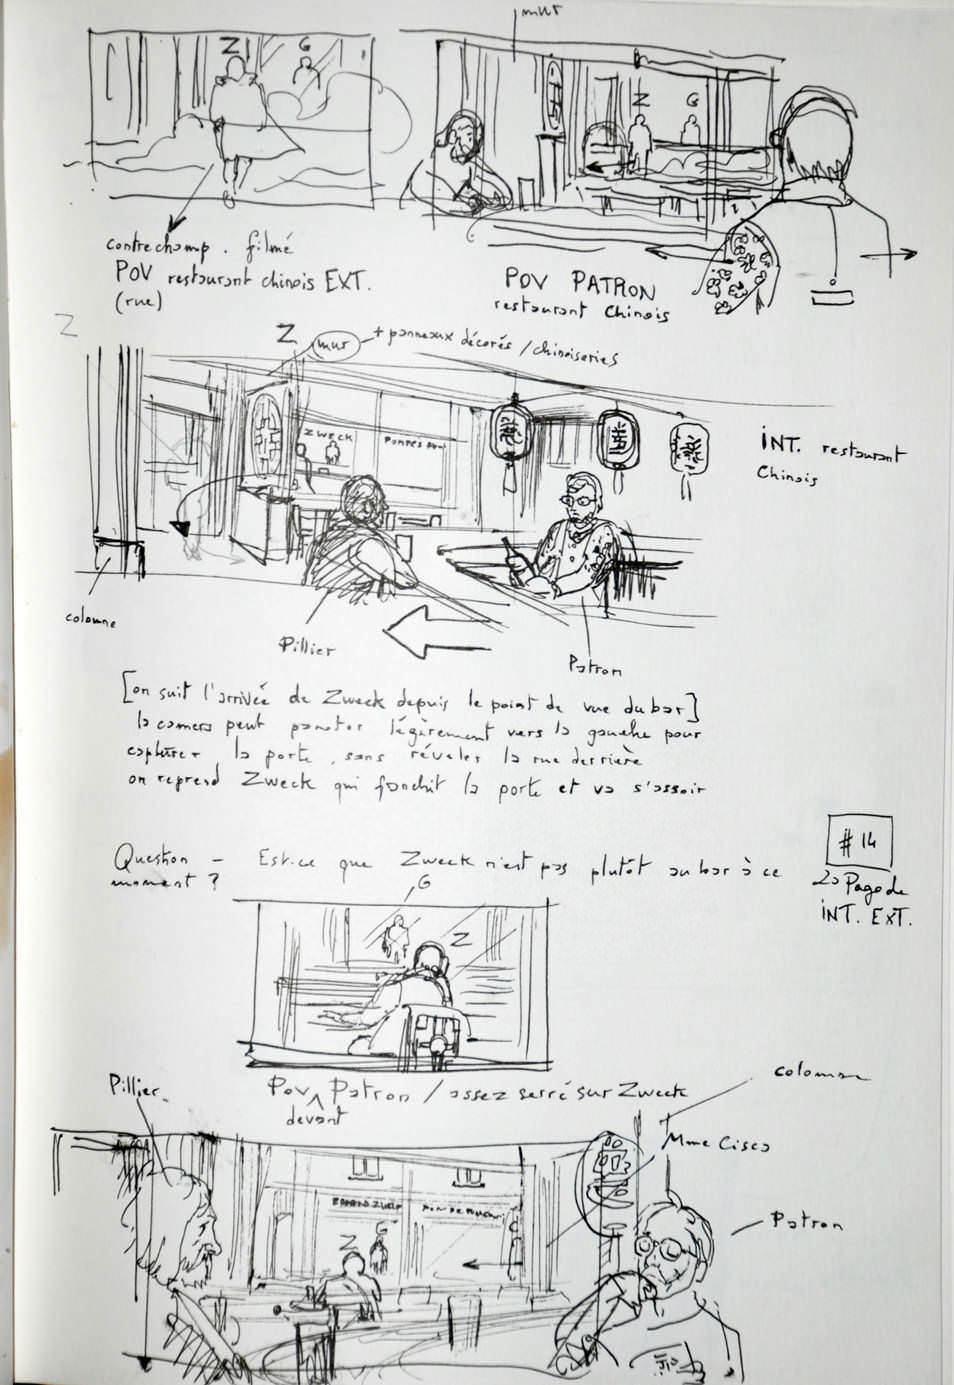 mur
Z G
Z G
contrechamp. filmé
POV restaurant chinois EXT.
(rue)
POV PATRON
restaurant Chinois
Z
Z
mur + panneaux décorés / chinoiseries
ZWECK
POMPES
INT. restaurant
Chinois
colonne
Pillier
Patron
[on suit l'arrivée de Zweck depuis le point de vue du bar]
la camera peut panoter légèrement vers la gauche pour
capturer la porte, sans révéler la rue derrière
on reprend Zweck qui franchit la porte et va s'assoir
# 14
Question - Est-ce que Zweck n'est pas plutôt au bar à ce
moment ?
2o Page de
INT. EXT.
G
Z
Pov Patron / assez serré sur Zweck
devant
Pillier
colonne
Mme Cisco
Patron
Z G
C